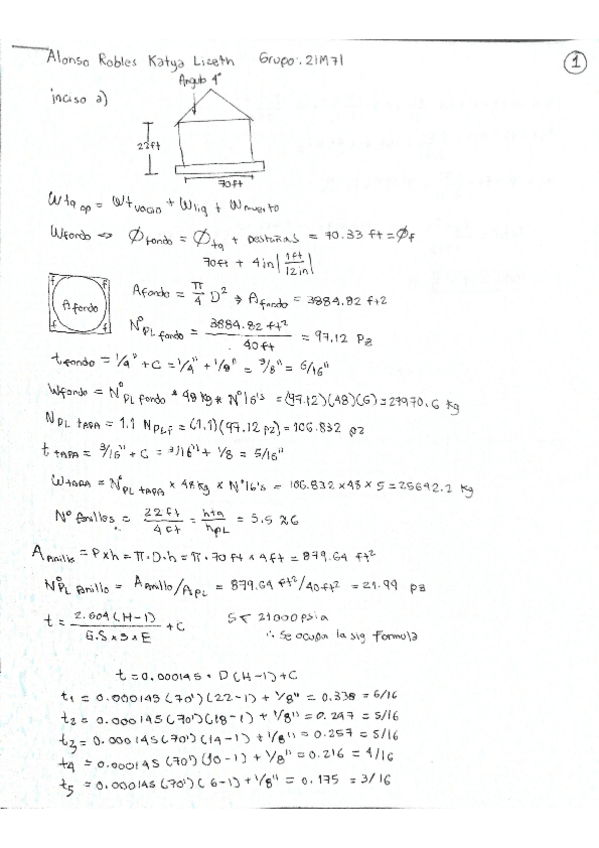 Alonso Robles Katya Liceth Grupo: 21M71
1
inciso a)
Angulo 4°
22ft
70ft
Wtq op = Wt vacio + Wliq + Wmuerto
Wfondo => Øfondo = Øtq + pestañas = 70.33 ft = Øf
70ft + 4in | 1ft / 12in |
f f
A fondo
f f
A fondo = π/4 D² => A fondo = 3884.82 ft2
N°PL fondo = 3884.82 ft² / 40ft = 97.12 Pz
t fondo = 1/4" + C = 1/4" + 1/8" = 3/8" = 6/16"
Wfondo = N°PL fondo * 48 kg * N°16's = (97.12)(48)(6) = 27970.6 kg
NPL tapa = 1.1 NPL f = (1.1)(97.12 pz) = 106.832 pz
t tapa = 3/16" + C = 3/16" + 1/8 = 5/16"
Wtapa = N°PL tapa × 48 kg × N°16's = 106.832 × 48 × 5 = 25642.2 kg
N° Anillos = 22 ft / 4 ft = htq / hPL = 5.5 ≈ 6
A Anillo = P×h = π·D·h = π·70ft × 4ft = 879.64 ft²
N°PL Anillo = A Anillo/APL = 879.64 ft²/40ft² = 21.99 pz
t = 2.604 (H-1) / G.S × S × E + C S < 21000 psia
∴ Se ocupan la sig formula
t = 0.000145 · D (H-1) + C
t1 = 0.000145 (70') (22-1) + 1/8" = 0.338 = 6/16
t2 = 0.000145 (70') (18-1) + 1/8" = 0.297 = 5/16
t3 = 0.000145 (70') (14-1) + 1/8" = 0.257 = 5/16
t4 = 0.000145 (70') (10-1) + 1/8" = 0.216 = 4/16
t5 = 0.000145 (70') (6-1) + 1/8" = 0.175 = 3/16